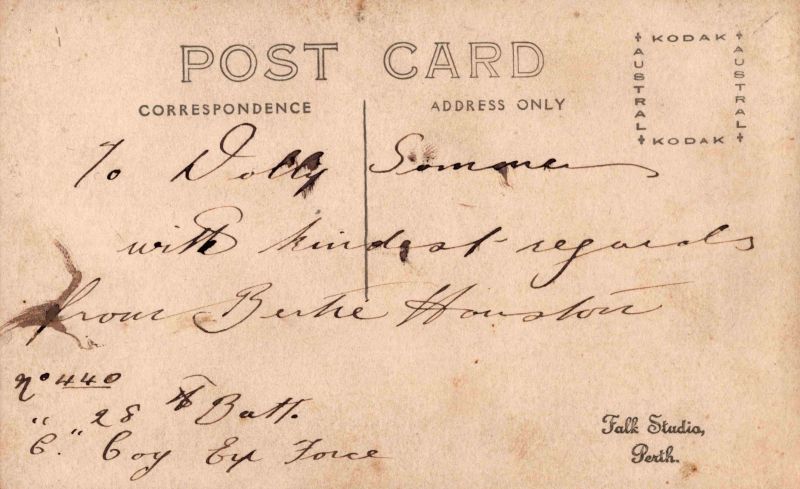 POST CARD
CORRESPONDENCE
ADDRESS ONLY
KODAK
AUSTRAL
AUSTRAL
KODAK
To Dolly
with kindest regards
from Bertie Houston
No 440
" 28th Batt.
"C." Coy Ex Force
Falk Studio,
Perth.